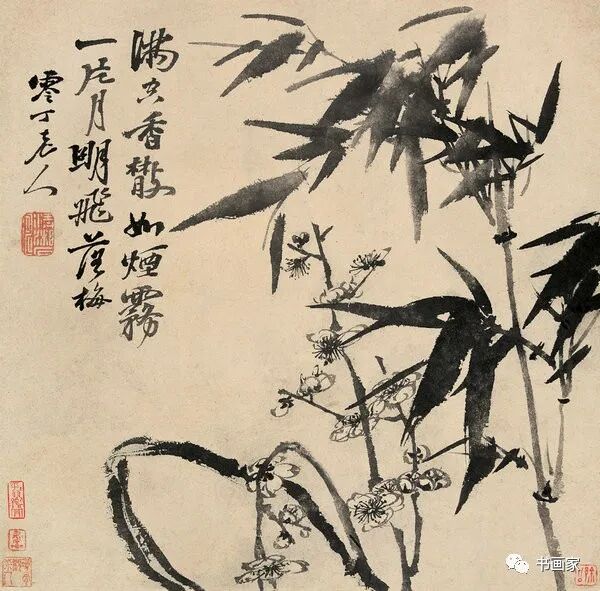 满空香散如烟雾
一片月明飛落梅
零丁老人
书画家